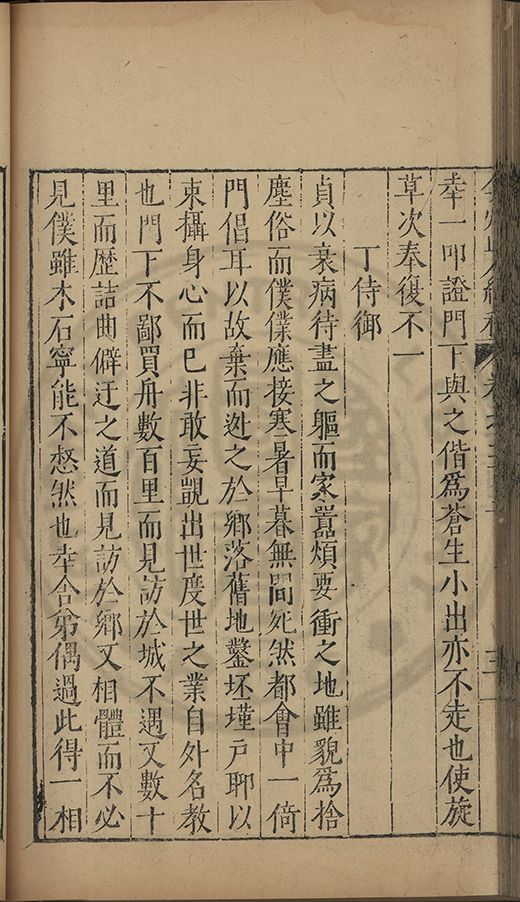 幸一叩證門下與之偕爲蒼生小出亦不走也使旋
草次奉復不一
丁侍御
貞以衰病待盡之軀而家嚚煩要衝之地雖貌爲捨
塵俗而僕僕應接寒暑早暮無間死然都會中一倚
門倡耳以故棄而迯之於鄉落舊地鑿坯墐戸聊以
束攝身心而已非敢妄覬出世度世之業自外名教
也門下不鄙買舟數百里而見訪於城不遇又數十
里而歷詰曲僻迂之道而見訪於鄉又相體而不必
見僕雖木石寧能不愁然也幸舍弟偶過此得一相